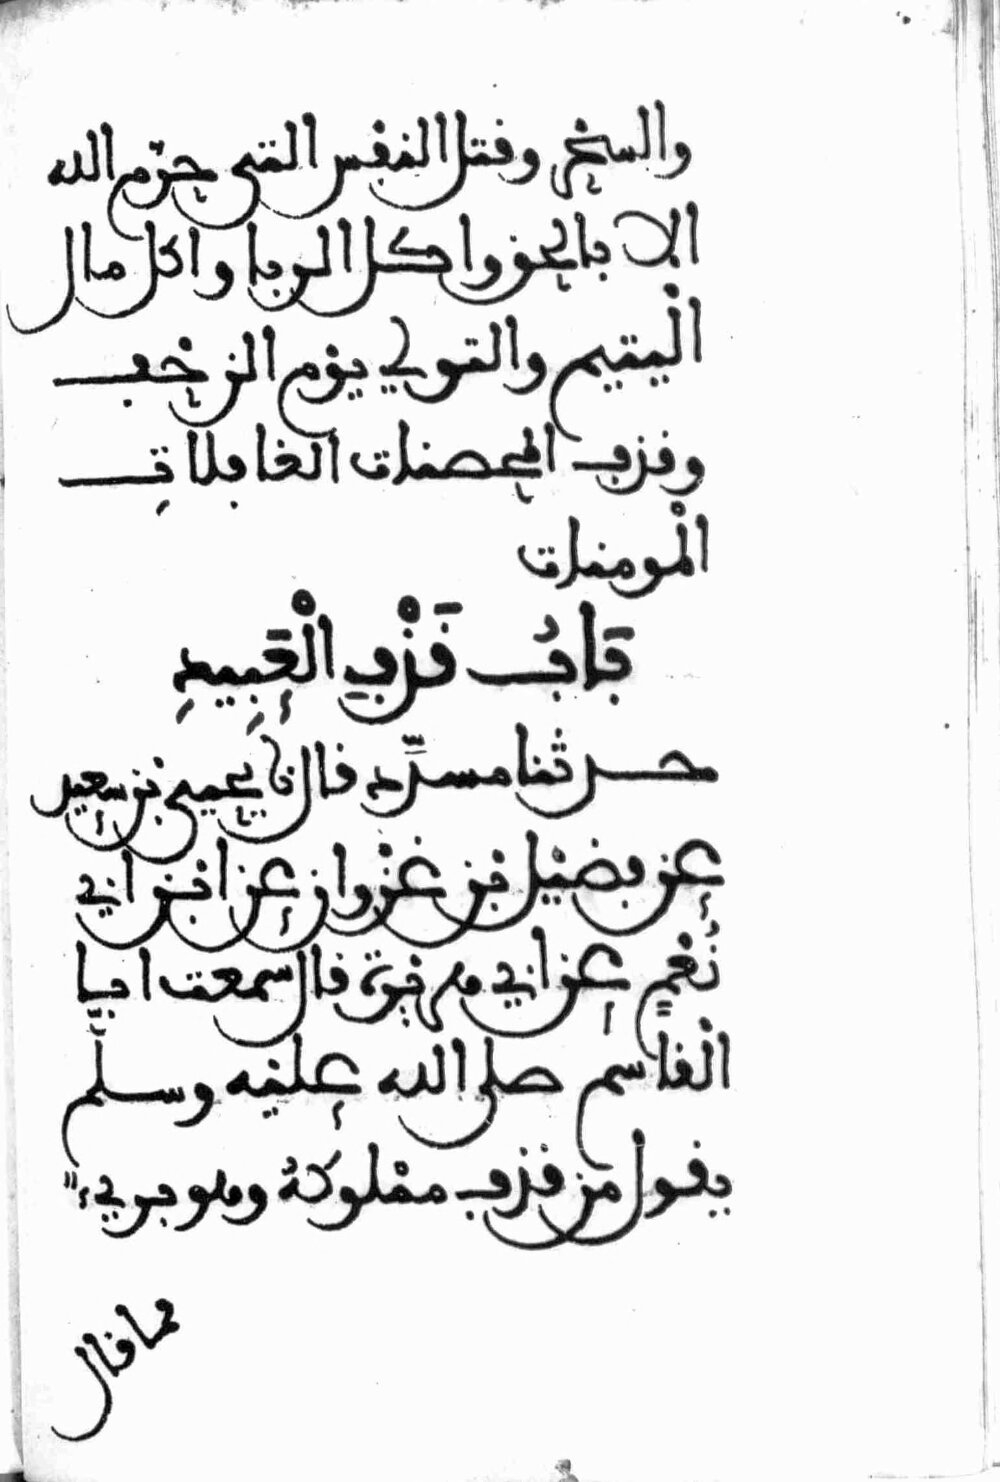 والسحر وقتل النفس التى حرّم الله
الا بالحق واكل الربا واكل مال
الْيتيم والتولي يوْم الزحْف
وقذف المحصنات الغافلات
الْمومنات
بَابُ قَذْفِ الْعَبِيدِ
حدثنا مسدّد قال نا يحيى بن سعيد
عن فضيْل بن غزْوان عن ابن ابي
نُعْمٍ عن ابي هريْرة قال سمعت ابا
الْقاسم صلى الله عليْه وسلّم
يقول مَن قذف ممْلوكهُ وهو بريء
مما قال